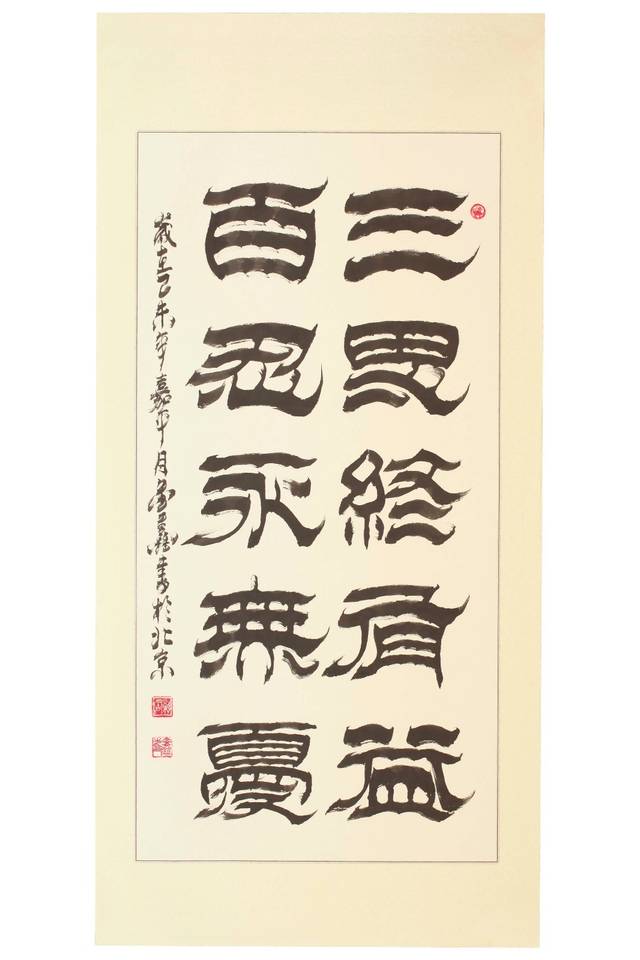 三思終有益
百忍永無憂
歲在乙未年嘉平月 書於北京